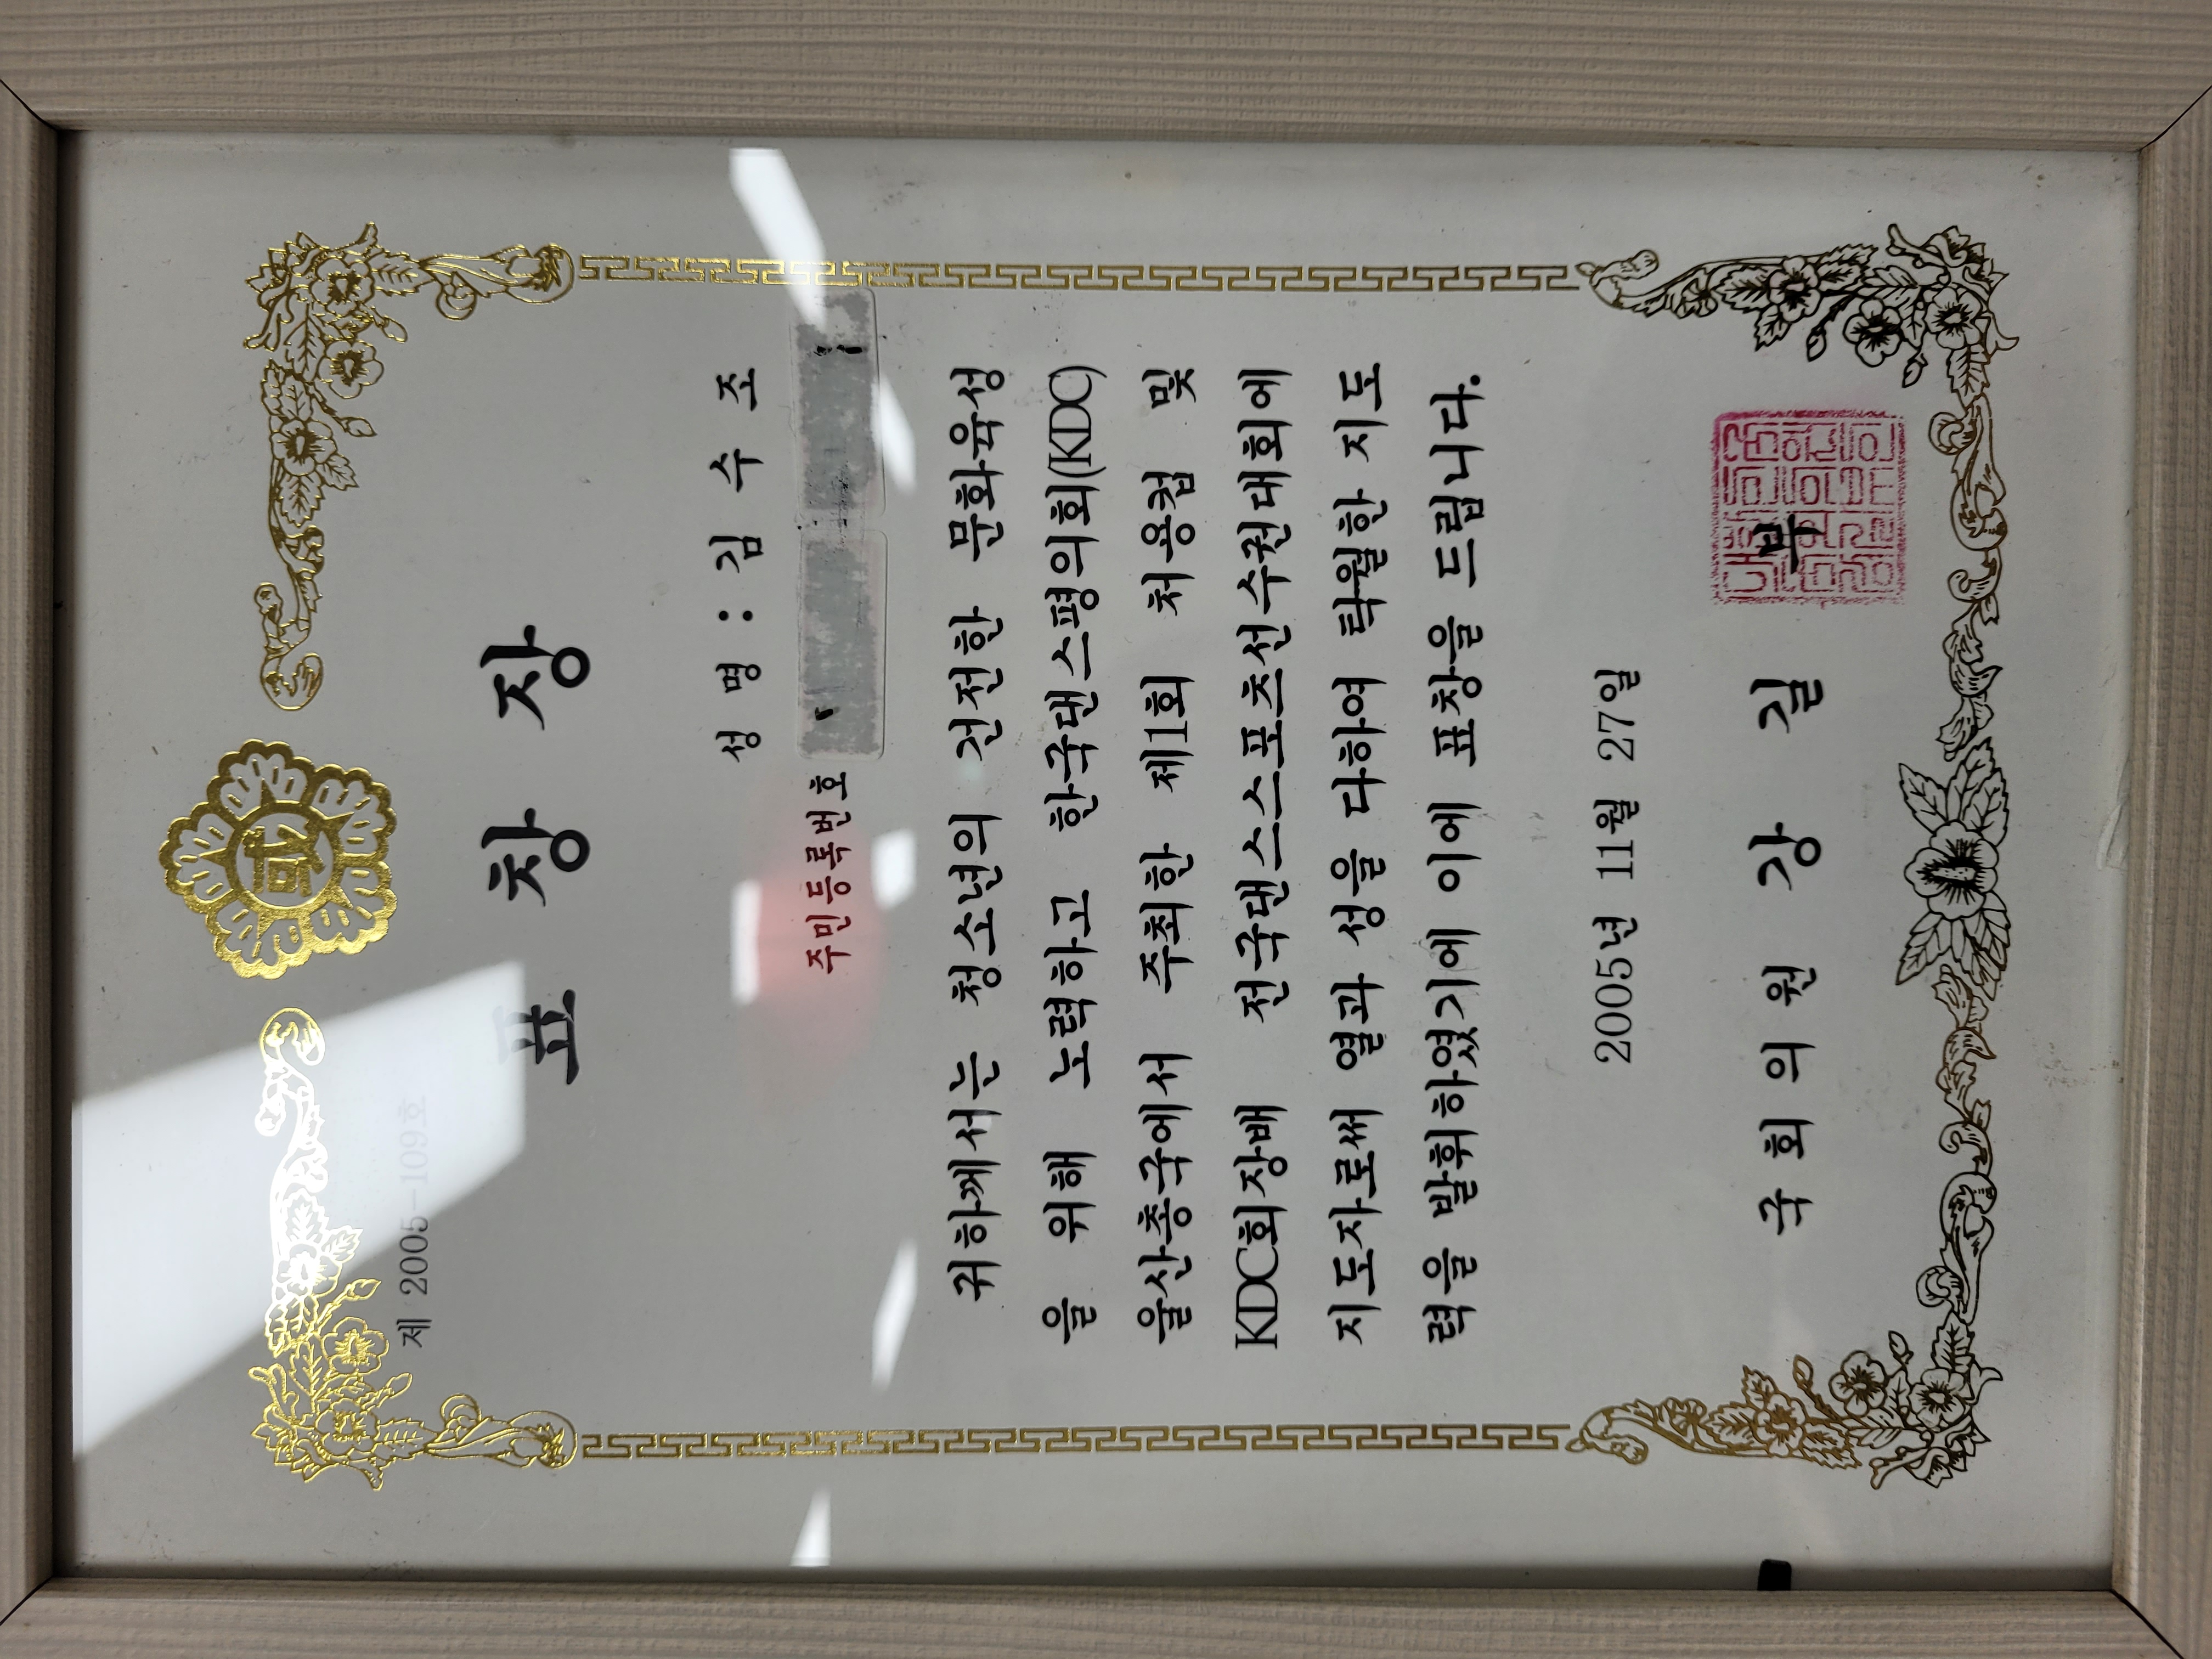 제 2005-109호
표 창 장
성 명 : 김 수 조
주민등록번호
귀하께서는 청소년의 건전한 문화육성
을 위해 노력하고 한국댄스평의회(KDC)
울산총국에서 주최한 제1회 처용컵 및
KDC회장배 전국댄스스포츠선수권대회에
지도자로써 열과 성을 다하여 탁월한 지도
력을 발휘하였기에 이에 표창을 드립니다.
2005년 11월 27일
국 회 의 원 강 길 부